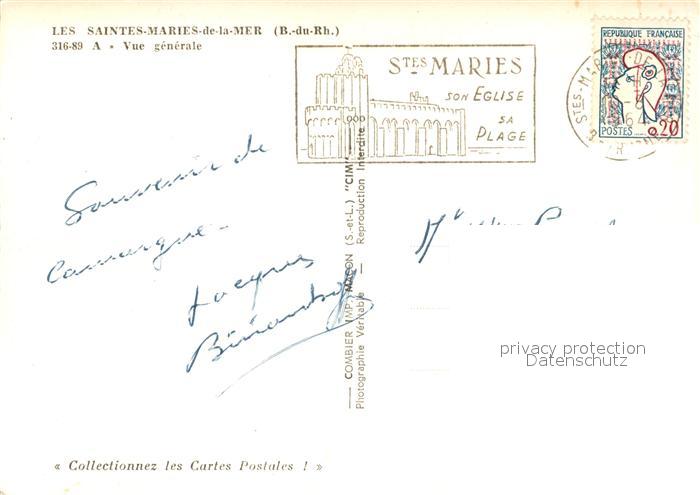 LES SAINTES-MARIES-de-la-MER (B.-du-Rh.)
316-89 A • Vue générale
STES MARIES
SON EGLISE
SA
PLAGE
REPUBLIQUE FRANÇAISE
0,20
POSTES
Souvenir de
Camargue
Jacques
COMBIER IMP. MACON (S.-et-L.) "CIM"
Photographie Véritable — Reproduction Interdite
privacy protection
Datenschutz
« Collectionnez les Cartes Postales ! »